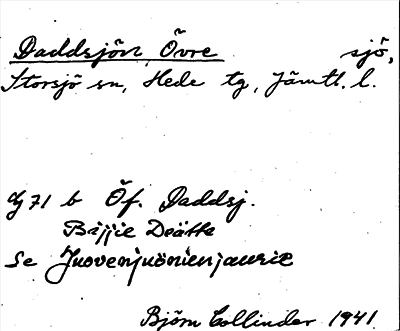 Daddsjön, Övre sjö,
Storsjö sn, Hede tg, Jämtl. l.
71 b Öf. Daddsj.
Bájjie Deätte
Se Juovenjuönienjaurie
Björn Collinder 1941